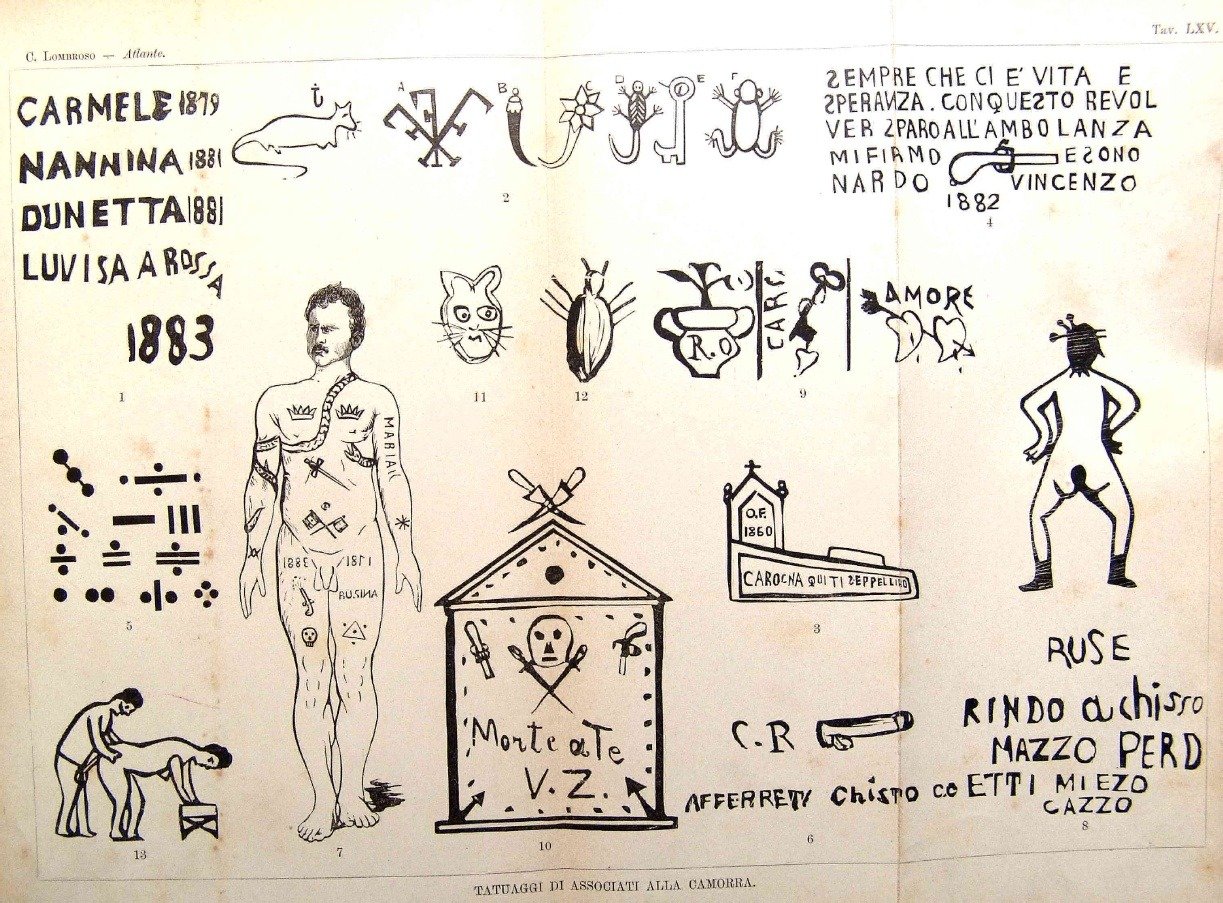 C. LOMBROSO — Atlante.
Tav. LXV.
CARMELE 1879
NANNINA 1881
DUNETTA 1881
LUVISA A ROSSA
1883
1
A
B
D
E
F
2
SEMPRE CHE CI E' VITA E
SPERANZA. CON QUESTO REVOL
VER SPARO ALL'AMBOLANZA
MI FIRMO E SONO
NARDO VINCENZO
1882
4
11
12
R.O
CARO
AMORE
9
5
MARIAN
S
1883
1781
RUSINA
7
13
Morte a Te
V. Z.
10
O.F.
1860
CAROGNA QUI TI SEPPELLIRO
3
C.R
AFFERRETV Chisto
6
RUSE
RINDO a chisso
MAZZO PERD
co ETTI MIEZO
CAZZO
8
TATUAGGI DI ASSOCIATI ALLA CAMORRA.